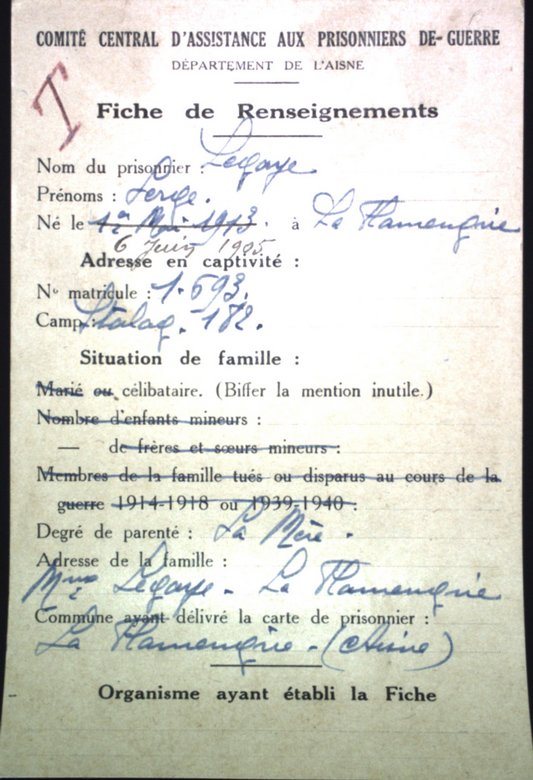 COMITÉ CENTRAL D'ASSISTANCE AUX PRISONNIERS DE-GUERRE
DÉPARTEMENT DE L'AISNE
T
Fiche de Renseignements
Nom du prisonnier : Legaye
Prénoms : Serge.
Né le 1er Mai 1913. à La Flamengrie
6 Juin 1905.
Adresse en captivité :
N° matricule : 1.693.
Camp : Stalag. 182.
Situation de famille :
Marié ou célibataire. (Biffer la mention inutile.)
Nombre d'enfants mineurs :
— de frères et sœurs mineurs :
Membres de la famille tués ou disparus au cours de la
guerre 1914-1918 ou 1939-1940 :
Degré de parenté : La Mère -
Adresse de la famille :
Mme Legaye - La Flamengrie
Commune ayant délivré la carte de prisonnier :
La Flamengrie - (Aisne)
Organisme ayant établi la Fiche